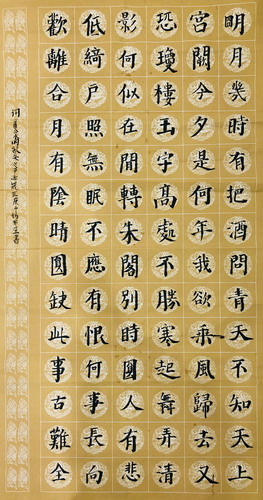 明月幾時有把酒問青天不知天上
宮闕今夕是何年我欲乘風歸去又
恐瓊樓玉宇高處不勝寒起舞弄清
影何似在間轉朱閣別時圓人有悲
低綺戶照無眠不應有恨何事長向
歡離合月有陰晴圓缺此事古難全